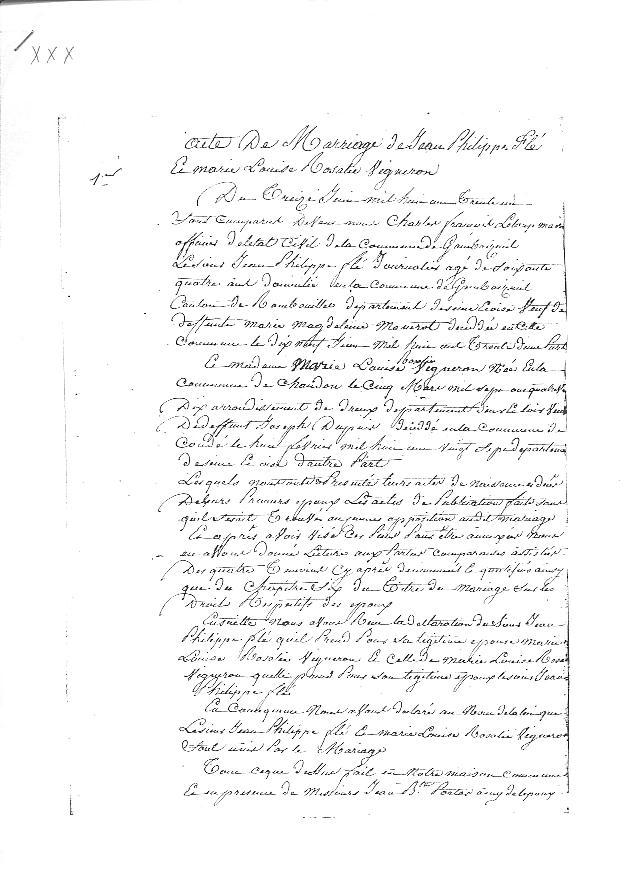 XXX
1er
acte De Marriage de Jean Philippe Flé
Et marie Louise Rosalie Vigneron
Du Treize Juin mil huit cent Trente un
Sont Comparus Devant nous Charles françois maire
officier d'état Civil de la Commune de Gambaiseuil
Le sieur Jean Philippe flé Journalier agé de soixante
quatre ans domicilié en la Commune de Gambaiseuil
Canton de Rambouillet departement de seine et oise Veuf de
deffunte marie magdeleine décédée en cette
Commune le dix neuf Juin mil huit cent Trente d'une Part
Et madame Marie Louise Rosalie Vigneron Née en la
Commune de le Cinq Mars mil sept cent quatre Vt
Dix arroudissement de Dreux departement Veuve
De deffunt Joseph Dupuis décédé en la Commune de
Condé le huit fevrier mil huit cent vingt sept departement
de seine et oise d'autre Part
Lesquels nous ont Presenté leurs actes de naissance et de décès
De leurs Premiers epoux Les actes de Publication faits sans
qu'il se soit Trouvée aucunes opposition audit mariage
Et après avoir Visé ces
en avons donné Lecture aux Parties Comparantes assistées
Des quatre Temoins Cy après denommés et qualifiés ainsy
que du Chapitre Six du Titre du Mariage sur les
Droits Respectifs des epoux
Ensuitte Nous avons Recu la declaration du sieur Jean
Philippe flé qu'il Prend Pour sa legitime epouse marie
Louise Rosalie Vigneron Et Celle de Marie Louise Rosalie
Vigneron quelle prend Pour son legitime epoux le sieur Jean
Philippe flé
En Consequence Nous avons declaré au Nom de la loi que
Le sieur Jean Philippe flé et marie Louise Rosalie Vigneron
Sont unis Par le Mariage
Tout ce que dessus fait en Notre maison Commune
Et en presence de Messieurs Jean Bte